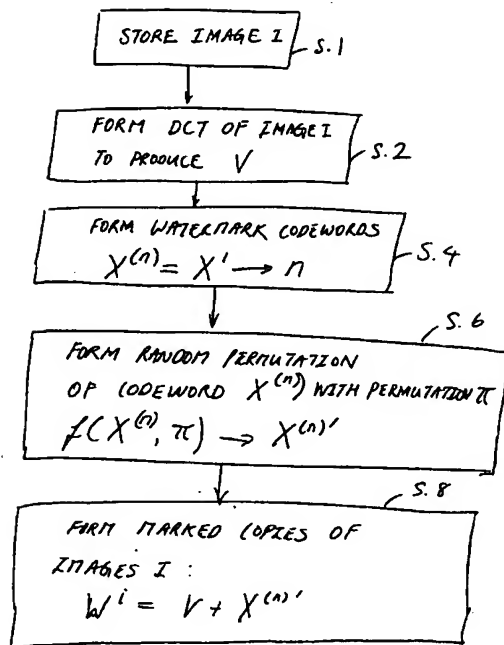 STORE IMAGE I
S.1
FORM DCT OF IMAGE I
TO PRODUCE V
S.2
FORM WATERMARK CODEWORDS
X^(n) = X^1 → n
S.4
S.6
FORM RANDOM PERMUTATION
OF CODEWORD X^(n) WITH PERMUTATION π
f(X^(n), π) → X^(n)'
S.8
FORM MARKED COPIES OF
IMAGES I :
W^i = V + X^(n)'